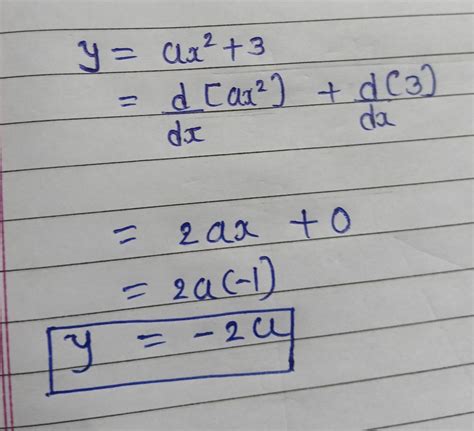 y = ax² + 3
= d/dx [ax²] + d/dx (3)
= 2ax + 0
= 2a(-1)
y = -2a